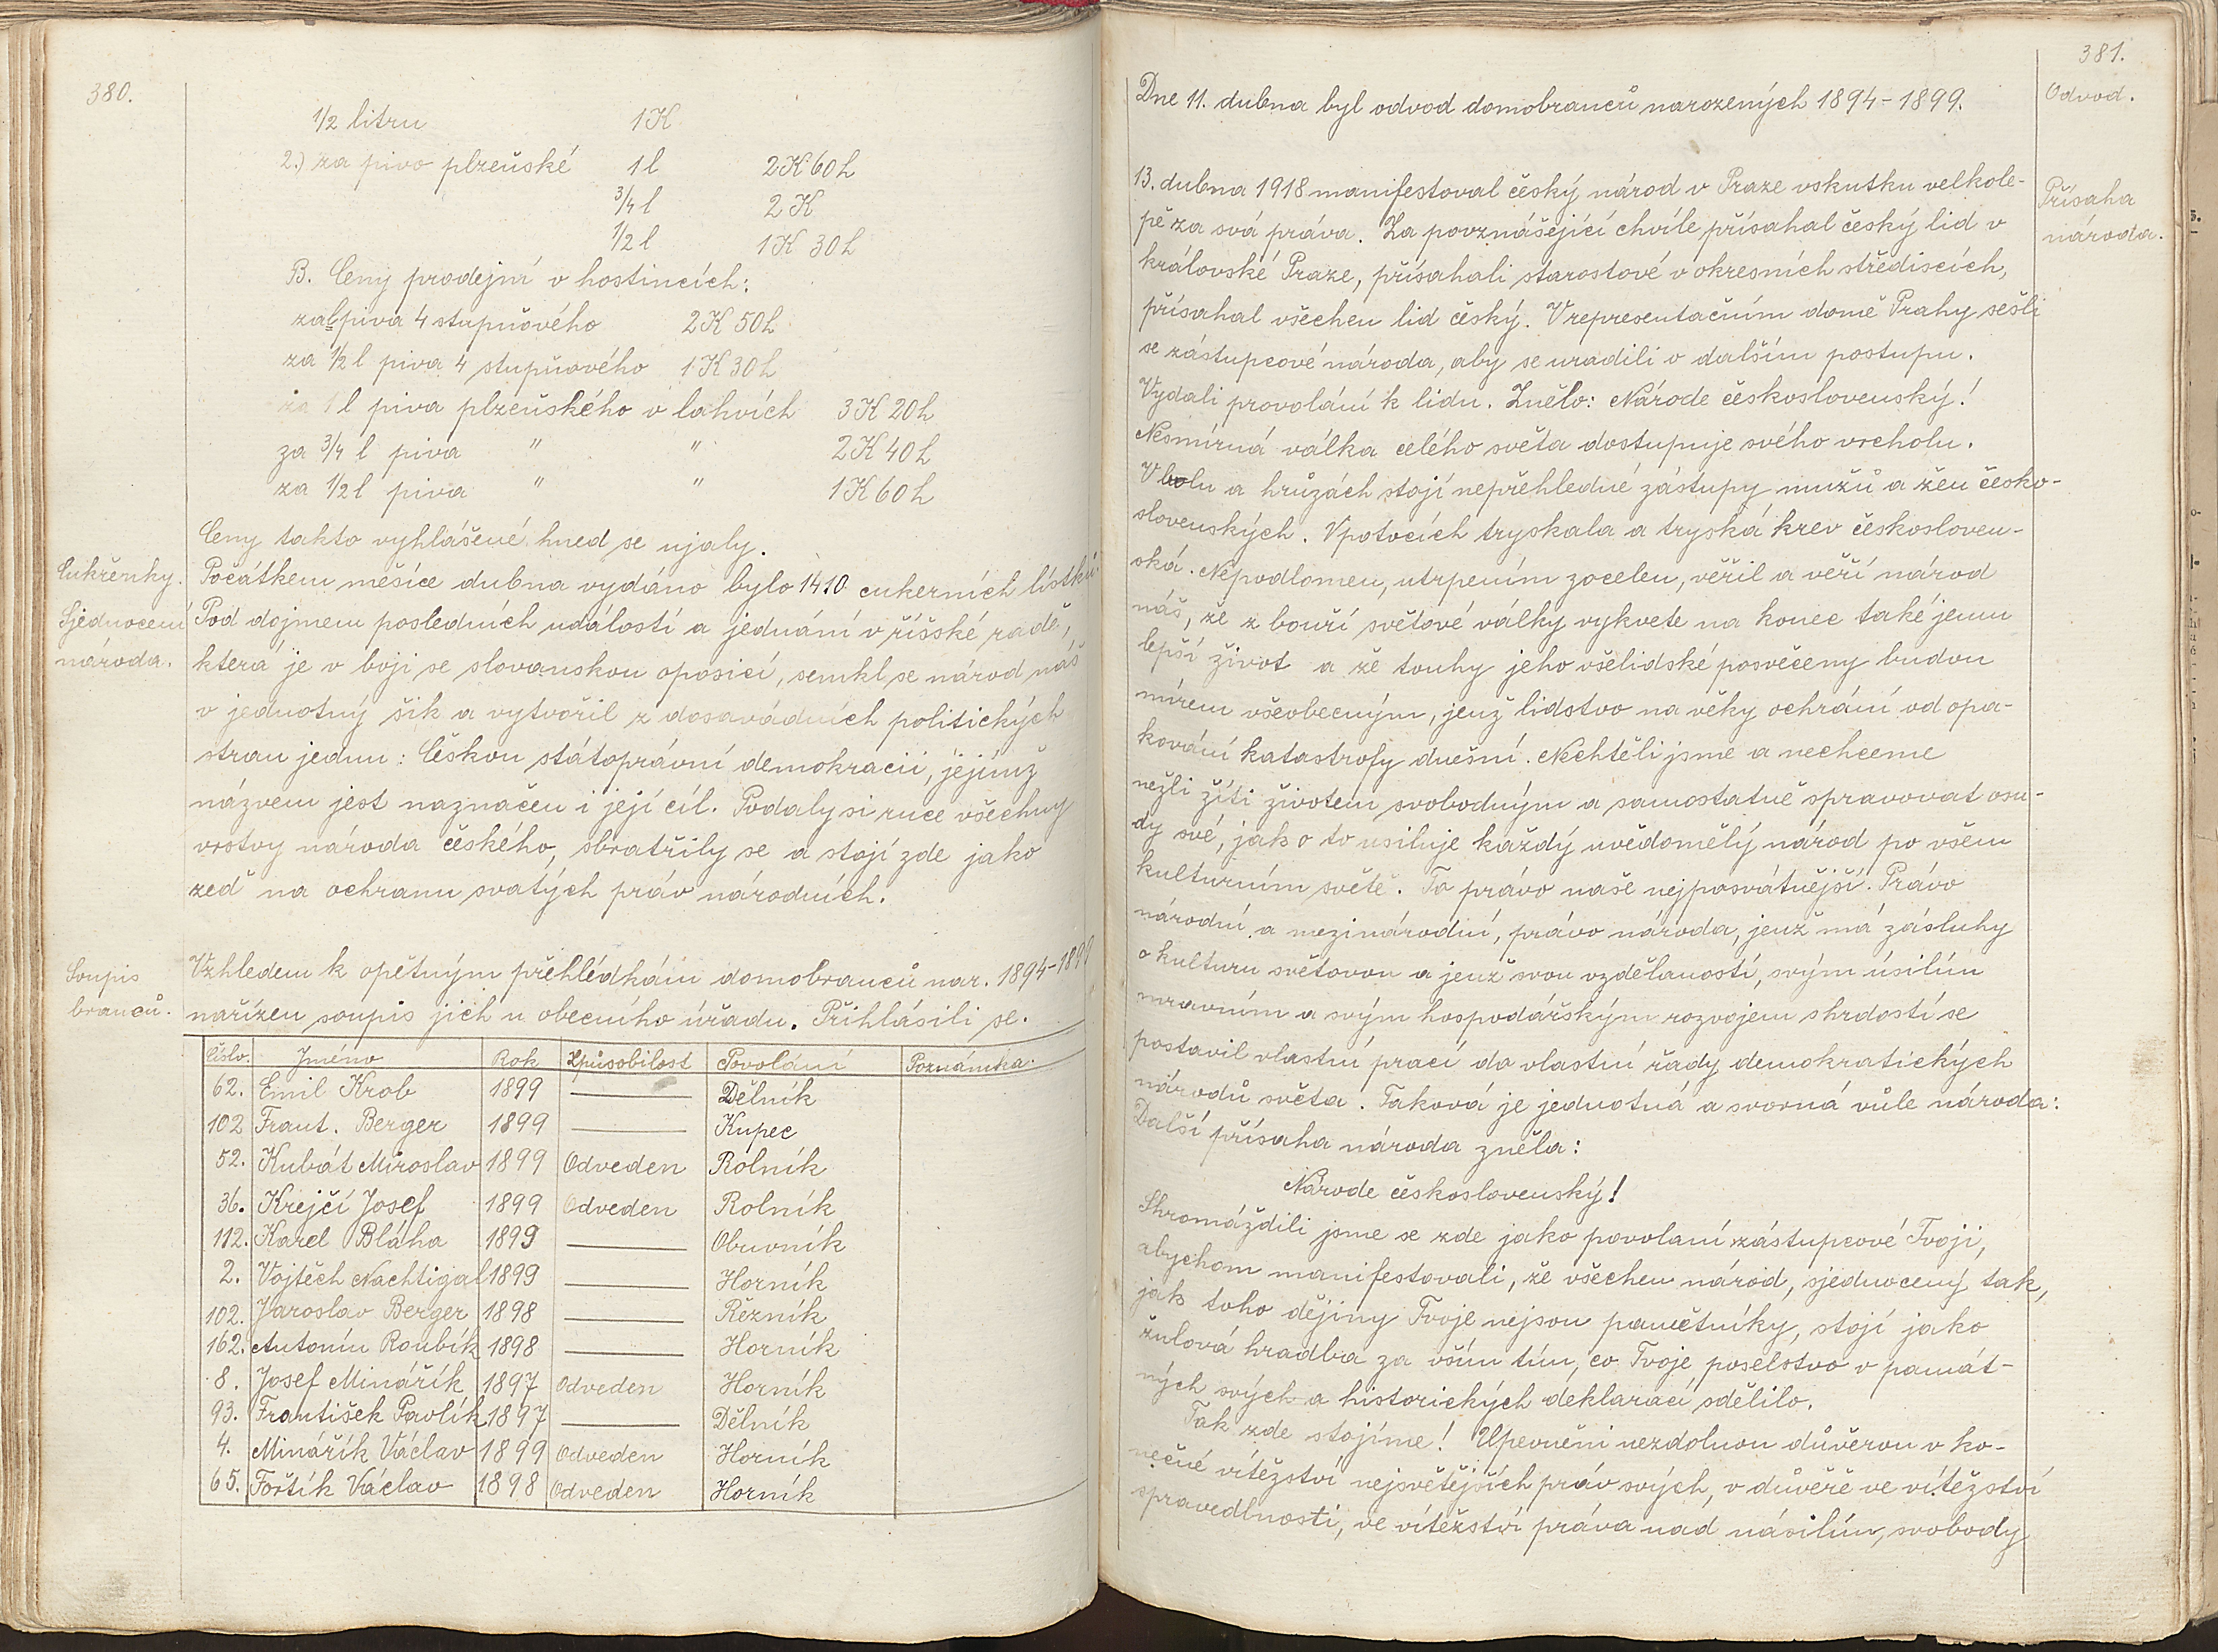 380.
1/2 litru 1K
2.) za pivo plzeňské 1l 2K 60h
3/4 l 2K
1/2 l 1K 30h
B. Ceny prodejní v hostincích:
za l piva 4 stupňového 2K 50h
za 1/2 l piva 4 stupňového 1K 30h
za 1 l piva plzeňského v lahvích 3K 20h
za 3/4 l piva " " 2K 40h
za 1/2 l piva " " 1K 60h
Ceny takto vyhlášené hned se ujaly.
Cukřenky. Počátkem měsíce dubna vydáno bylo 1410 cukerních lístků.
Sjednocení Pod dojmem posledních událostí a jednání v říšské radě,
národa. která je v boji se slovanskou oposicí, semkl se národ náš
v jednotný šik a vytvořil z dosavádních politických
stran jednu: Českou státoprávní demokracii, jejímž
názvem jest naznačen i její cíl. Podaly si ruce všechny
vrstvy národa českého, sbratřily se a stojí zde jako
zeď na ochranu svatých práv národních.
Soupis Vzhledem k opětným přehlídkám domobranců nar. 1894-1899
branců. nařízen soupis jich u obecního úřadu. Přihlásili se.
Číslo. Jméno Rok Způsobilost Povolání Poznámka.
62. Emil Krob 1899 — Dělník
102 Frant. Berger 1899 — Kupec
52. Kubát Miroslav 1899 Odveden Rolník
36. Krejčí Josef 1899 Odveden Rolník
112. Karel Bláha 1899 — Obuvník
2. Vojtěch Nachtigal 1899 — Horník
102. Jaroslav Berger 1898 — Řezník
162. Antonín Roubík 1898 — Horník
8. Josef Minářík 1897 Odveden Horník
93. František Pavlík 1897 — Dělník
4. Minářík Václav 1899 Odveden Horník
65. Fořtík Václav 1898 Odveden Horník
381.
Dne 11. dubna byl odvod domobranců narozených 1894-1899. Odvod.
13. dubna 1918 manifestoval český národ v Praze vskutku velkole- Přísaha
pě za svá práva. Za povznášející chvíle přísahal český lid v národa.
královské Praze, přísahali starostové v okresních střediscích,
přísahal všechen lid český. V representačním domě Prahy sešli
se zástupcové národa, aby se uradili o dalším postupu.
Vydali provolání k lidu. Znělo: Národe československý!
Nesmírná válka celého světa dostupuje svého vrcholu.
V bolu a hrůzách stojí nepřehledné zástupy mužů a žen česko-
slovenských. V potocích tryskala a tryská krev českosloven-
ská. Nepodlomen, utrpením zocelen, věřil a věří národ
náš, že z bouří světové války vykvete na konec také jemu
lepší život a že touhy jeho všelidské posvěceny budou
mírem všeobecným, jenž lidstvo na věky ochrání od opa-
kování katastrofy dnešní. Nechtěli jsme a nechceme
nežli žíti životem svobodným a samostatně spravovat osu-
dy své, jak o to usiluje každý uvědomělý národ po všem
kulturním světě. To právo naše nejposvátnější. Právo
národní a mezinárodní, právo národa, jenž má zásluhy
o kulturu světovou a jenž svou vzdělaností, svým úsilím
mravním a svým hospodářským rozvojem s hrdostí se
postavil vlastní prací do vlastní řady demokratických
národů světa. Taková je jednotná a svorná vůle národa:
Další přísaha národa zněla:
Národe československý!
Shromáždili jsme se zde jako povolaní zástupcové Tvoji,
abychom manifestovali, že všechen národ, sjednocený tak,
jak toho dějiny Tvoje nejsou pamětníky, stojí jako
žulová hradba za vším tím, co Tvoje poselstvo v památ-
ných svých a historických deklarací, sdělilo.
Tak zde stojíme! Upevněni nezdolnou důvěrou v ko-
nečné vítězství nejsvětějších práv svých, v důvěře ve vítězství
spravedlnosti, ve vítězství práva nad násilím, svobody